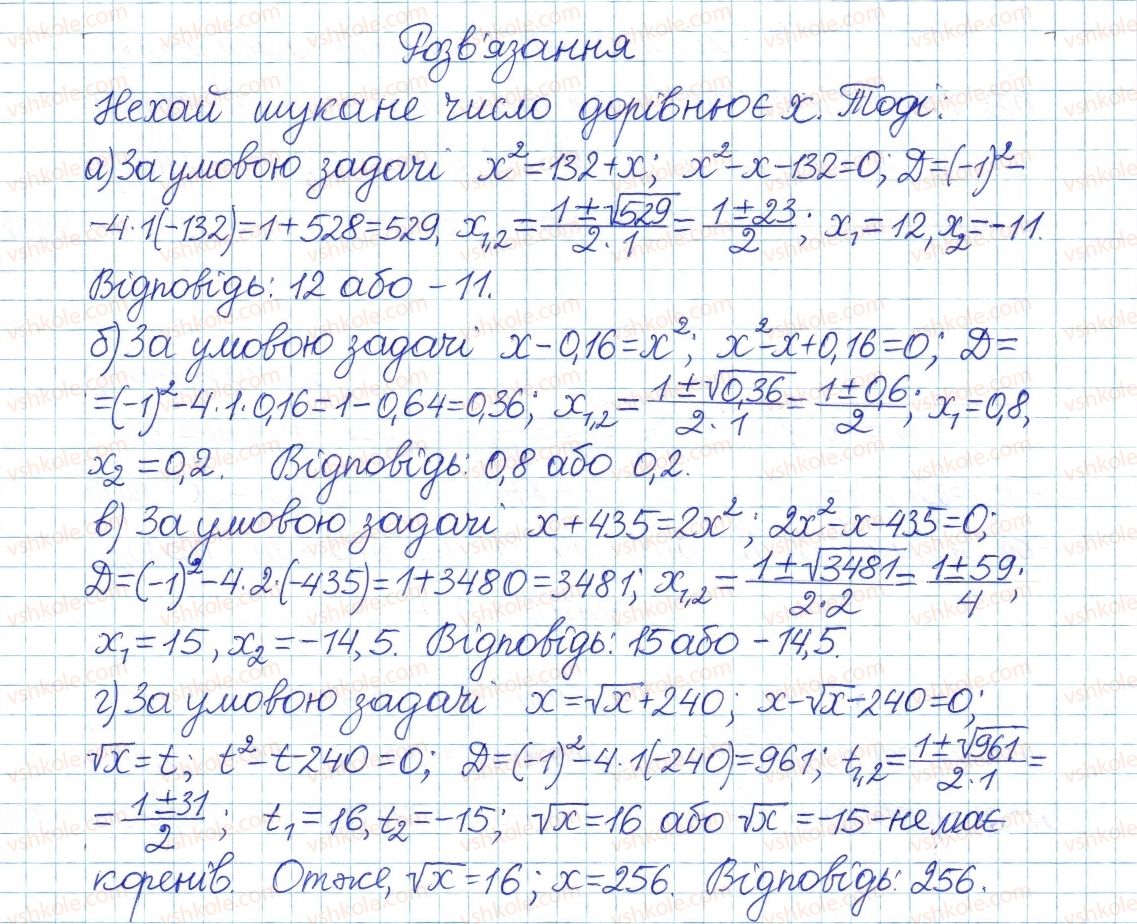 Розв'язання
Нехай шукане число дорівнює x. Тоді:
а) За умовою задачі x²=132+x; x²-x-132=0; D=(-1)²-
-4·1(-132)=1+528=529, x₁,₂=(1±√529)/(2·1)=(1±23)/2; x₁=12, x₂=-11.
Відповідь: 12 або -11.
б) За умовою задачі x-0,16=x²; x²-x+0,16=0; D=
=(-1)²-4·1·0,16=1-0,64=0,36; x₁,₂=(1±√0,36)/(2·1)=(1±0,6)/2; x₁=0,8,
x₂=0,2. Відповідь: 0,8 або 0,2.
в) За умовою задачі x+435=2x²; 2x²-x-435=0;
D=(-1)²-4·2·(-435)=1+3480=3481; x₁,₂=(1±√3481)/(2·2)=(1±59)/4;
x₁=15, x₂=-14,5. Відповідь: 15 або -14,5.
г) За умовою задачі x=√x+240; x-√x-240=0;
√x=t; t²-t-240=0; D=(-1)²-4·1(-240)=961; t₁,₂=(1±√961)/(2·1)=
=(1±31)/2; t₁=16, t₂=-15; √x=16 або √x=-15-не має
коренів. Отже, √x=16; x=256. Відповідь: 256.